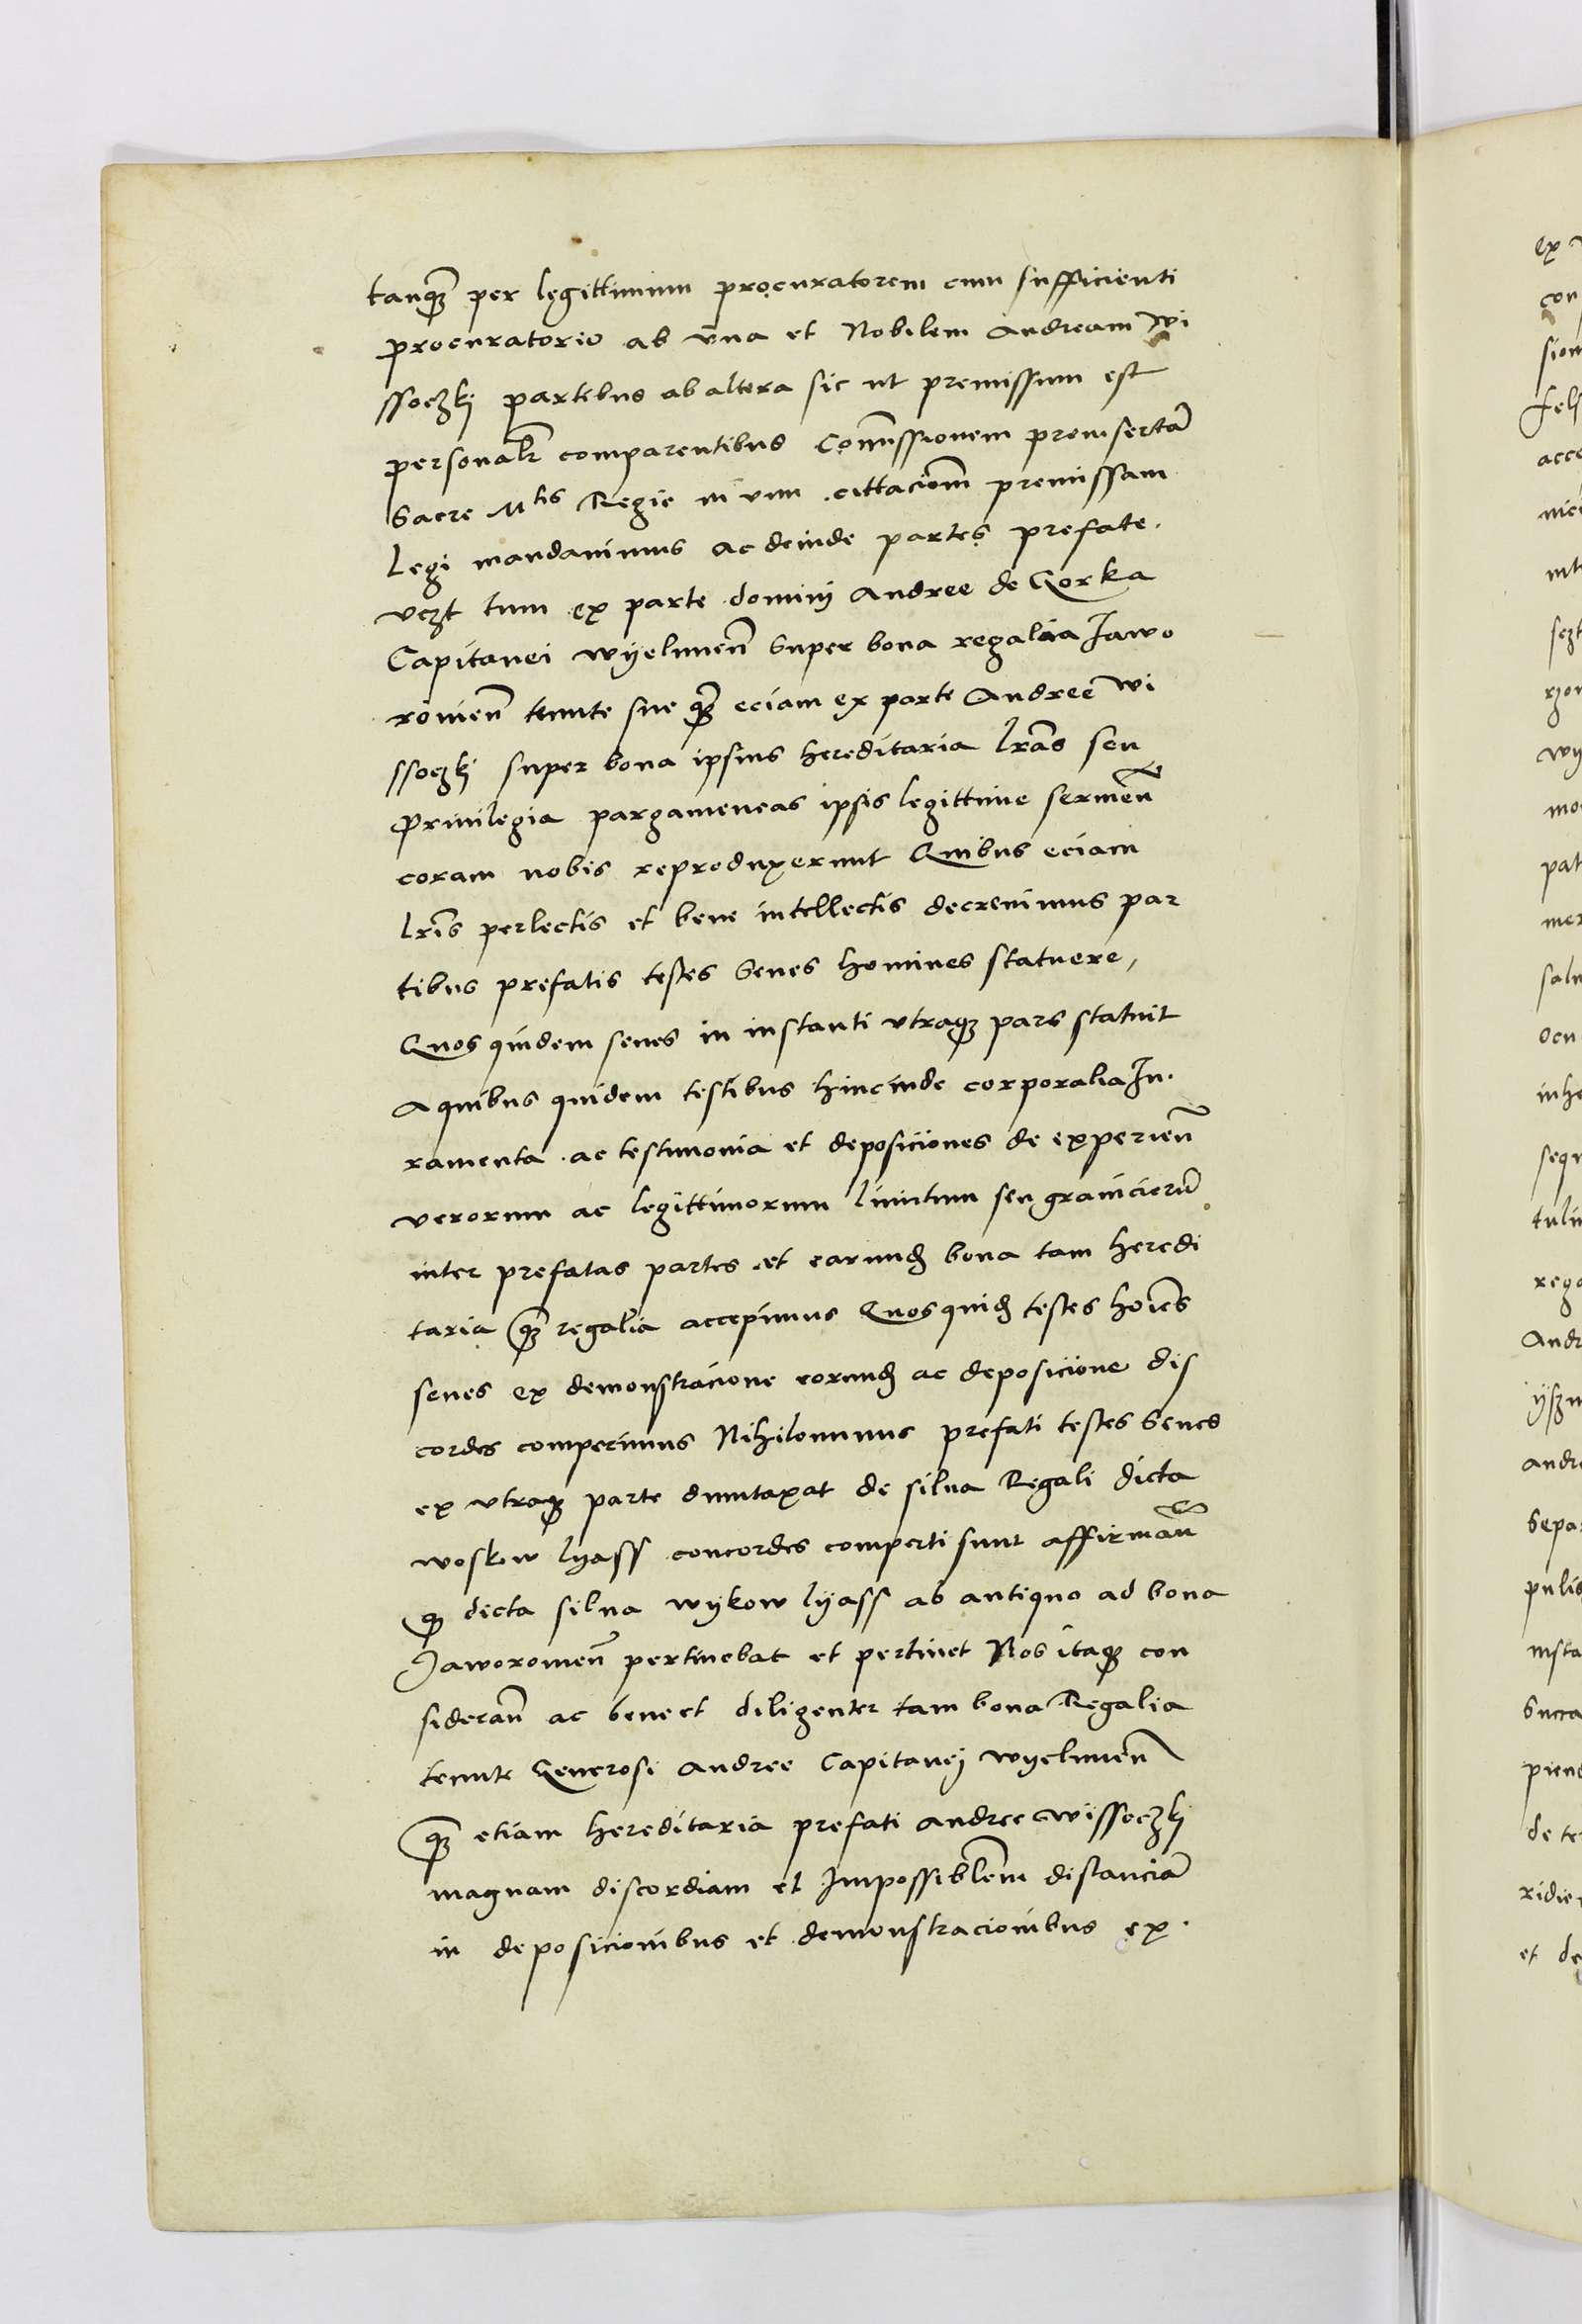 tanqȝ per legittimum procuratorem cum sufficienti
procuratorio ab vna et Nobilem Andream Wi
ssoczkij partibus ab altera sic ut premissum est
personalr comparentibus Comissionem preinsertā
Sacre Mtis Regie in vim cittaciom premissam
Legi mandauimus ac deinde partes prefate.
vczt tum ex parte domini Andree de Gorka
Capitanei wyelunen̄ Super bona regalia Jawo
romien̄ tenute sue qȝ eciam ex parte Andree Wi
ssoczkij super bona ipsius hereditaria lrās seu
Priuilegia pargameneas ipsis legittime seruien̄
coram nobis reproduxerunt Quibus eciam
lrīs perlectis et bene intellectis decreuimus par
tibus prefatis testes Senes homines statuere,
Quos quidem senes in instanti vtraqȝ pars statuit
A quibus quidem testibus hincinde corporalia Ju.
ramenta . ac testimonia et deposiciones de experien̄
verorum ac legittimorum limitum seu granicierū
inter prefatas partes . et earundȝ bona tam heredi
taria qȝ regalia accepimus Quosquidȝ testes hoīes
senes ex demonstracione eorundȝ ac deposicione dis
cordes comperimus Nihilominus prefati testes Senes
ex vtraqȝ parte dumtaxat de silua Regali dicta
woskow lyass concordes comperti sunt affirman̄
qȝ dicta silua wykow lyass ab antiquo ad bona
Jaworomien̄ pertinebat et pertinet Nos itaqȝ con
sideran̄ ac bene et diligenter tam bona Regalia
tenute Generosi Andree Capitanej wyelunen̄
qȝ etiam hereditaria prefati Andree Wissoczkij
magnam discordiam et Impossiblem distanciā
in deposicionibus et demonstracionibus ex.